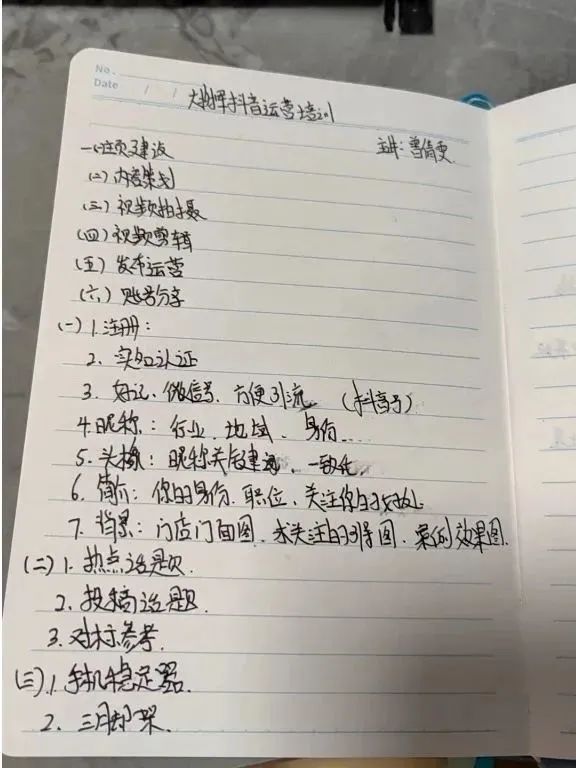 No.
Date / /
抖音运营培训
主讲：曾倩雯
一、主页建设
(二) 内容策划
(三) 视频拍摄
(四) 视频剪辑
(五) 发布运营
(六) 账号分享
(一) 1. 注册：
2. 实名认证
3. 好记、微信号、方便引流 (抖音号)
4. 昵称：行业、地域、身份...
5. 头像：昵称关键建设、一致化
6. 简介：你的身份、职位、关注你的好处
7. 背景：门店门面图、求关注的引导图、案例效果图.
(二) 1. 热点话题.
2. 投稿话题.
3. 对标参考.
(三) 1. 手机稳定器.
2. 三脚架.